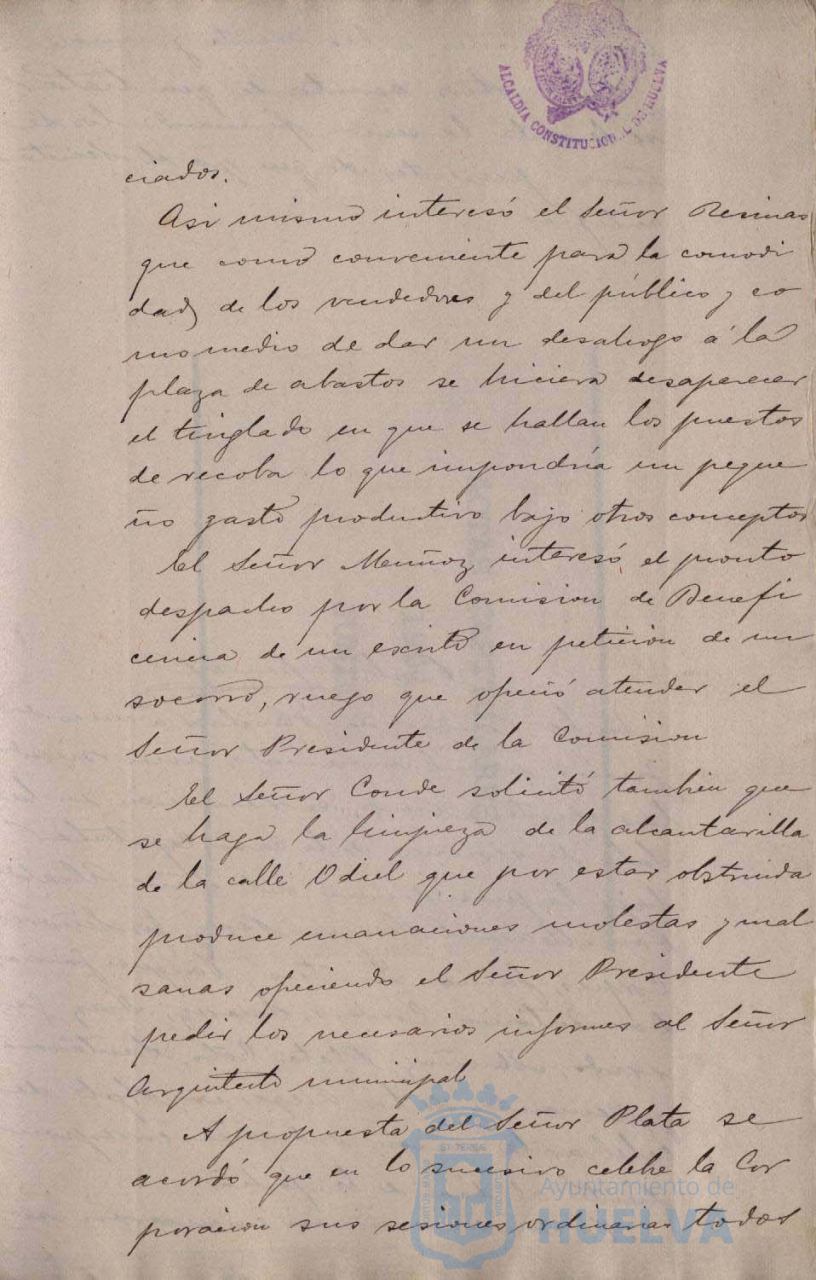 ALCALDIA CONSTITUCIONAL DE HUELVA
ciados.
Asi mismo interesó el Señor Resinas
que como conveniente para la comodi
dad de los vendedores y del público y co
mo medio de dar un desahogo á la
plaza de abastos se hiciera desaparecer
el tinglado en que se hallan los puestos
de recoba lo que impondría un peque
ño gasto productivo bajo otros conceptos
El Señor Muñoz interesó el pronto
despacho por la Comision de Benefi
cencia de un escrito en peticion de un
socorro, ruego que ofreció atender el
Señor Presidente de la Comision
El Señor Conde solicitó tambien que
se haga la limpieza de la alcantarilla
de la calle Odiel que por estar obstruida
produce emanaciones molestas y mal
sanas ofreciendo el Señor Presidente
pedir los necesarios informes al Señor
Arquitecto municipal
A propuesta del Señor Plata se
acordó que en lo sucesivo celebre la Cor
poracion sus sesiones ordinarias todos
Ayuntamiento de
HUELVA